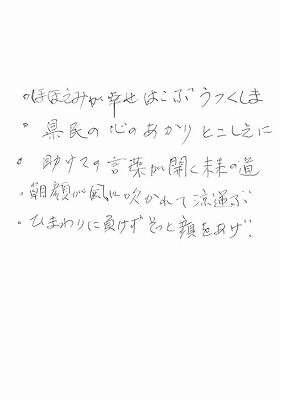 ・ほほえみが幸せはこぶうつくしま
・県民の心のあかりとこしえに
・助けての言葉が開く未来の道
・朝顔が風に吹かれて涼運ぶ
・ひまわりに負けずそっと顔をあげ